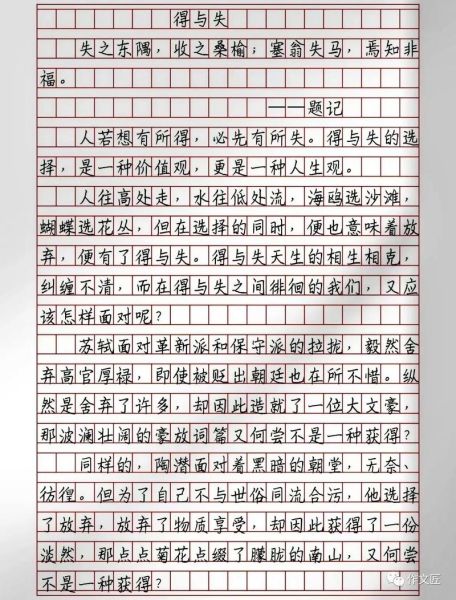 得与失
失之东隅，收之桑榆；塞翁失马，焉知非
福。
——题记
人若想有所得，必先有所失。得与失的选
择，是一种价值观，更是一种人生观。
人往高处走，水往低处流，海鸥选沙滩，
蝴蝶选花丛，但在选择的同时，便也意味着放
弃，便有了得与失。得与失天生的相生相克，
纠缠不清，而在得与失之间徘徊的我们，又应
该怎样面对呢？
苏轼面对革新派和保守派的拉拢，毅然舍
弃高官厚禄，即使被贬出朝廷也在所不惜。纵
然是舍弃了许多，却因此造就了一位大文豪，
那波澜壮阔的豪放词篇又何尝不是一种获得？
同样的，陶潜面对着黑暗的朝堂，无奈、
彷徨。但为了自己不与世俗同流合污，他选择
了放弃，放弃了物质享受，却因此获得了一份
淡然，那点点菊花点缀了朦胧的南山，又何尝
不是一种获得？
作文匠